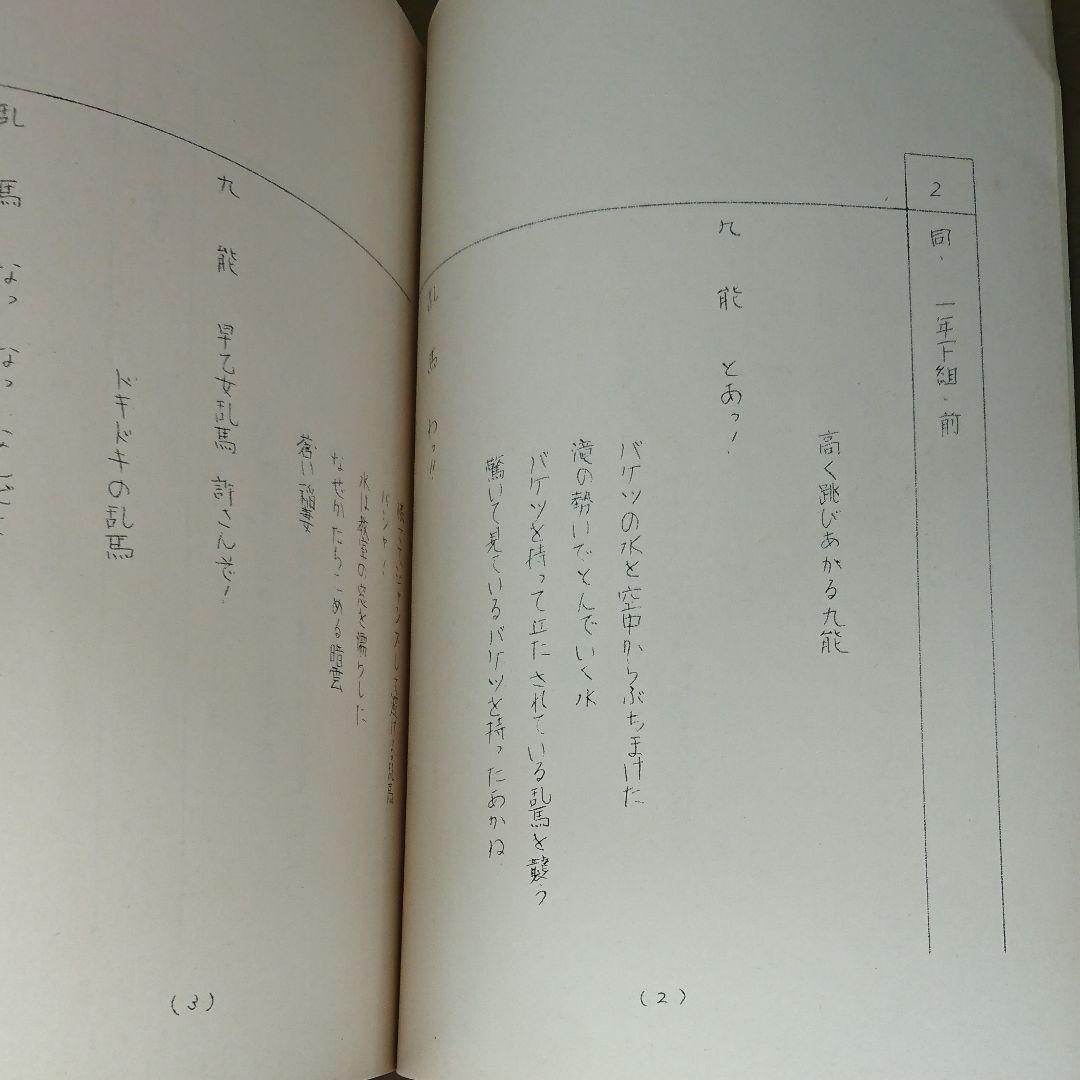 2
同、一年F組・前
高く跳びあがる九能
九能 とあっ!
バケツの水を空中からぶちまけた
滝の勢いでとんでいく水
バケツを持って立たされている乱馬を襲う
驚いて見ているバケツを持ったあかね
乱馬 わっ!!
(2)
バシャ!
水は教室の窓を濡らした
なぜかたちこめる暗雲
蒼い稲妻
九能 早乙女乱馬 許さんぞ!
ドキドキの乱馬
乱馬 なっ なっ なんで
(3)